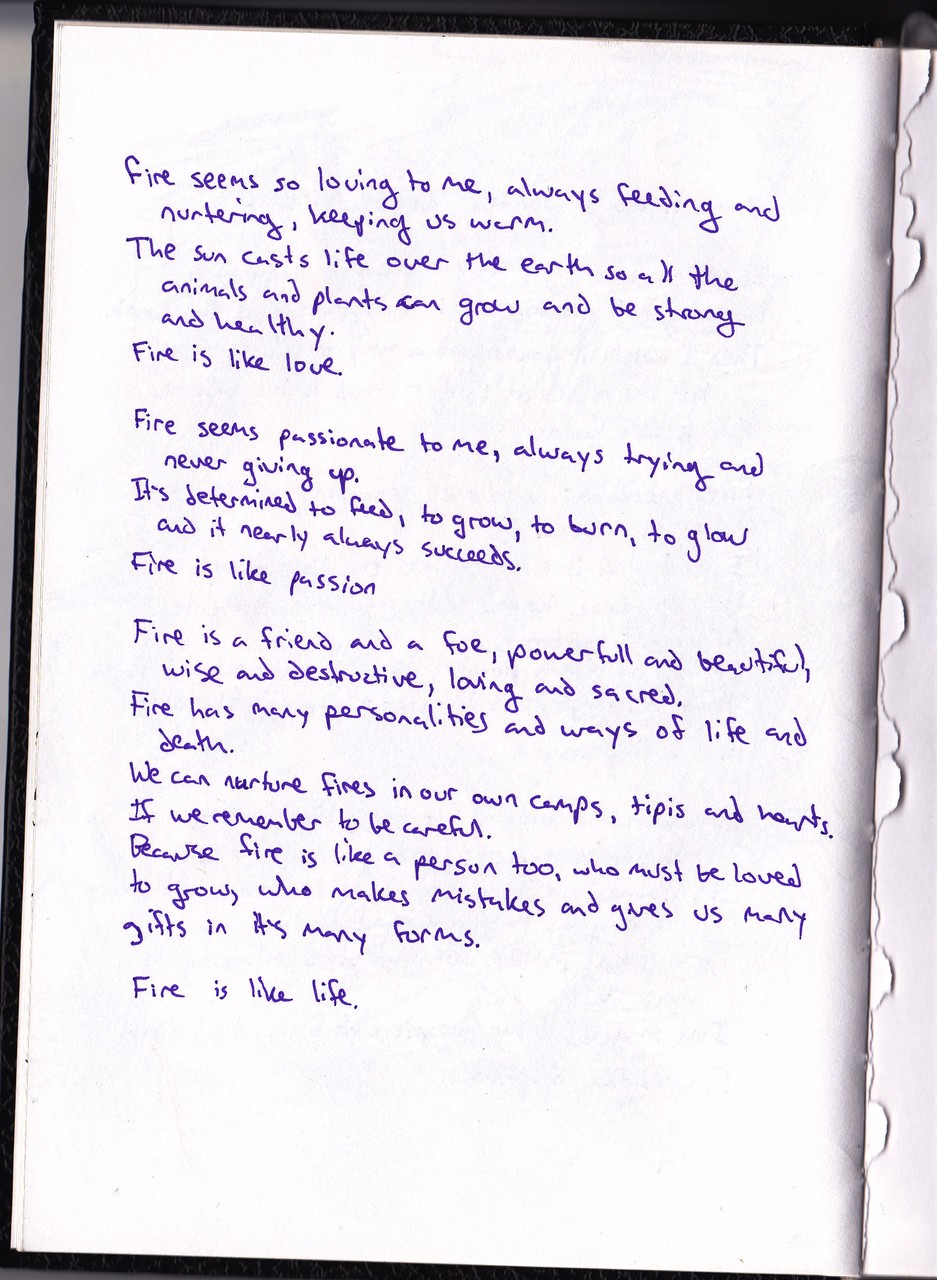 Fire seems so loving to me, always feeding and
nurtering, keeping us warm.
The sun casts life over the earth so all the
animals and plants can grow and be strong
and healthy.
Fire is like love.
Fire seems passionate to me, always trying and
never giving up.
It's determined to feed, to grow, to burn, to glow
and it nearly always succeeds.
Fire is like passion
Fire is a friend and a foe, powerfull and beautiful,
wise and destructive, loving and sacred.
Fire has many personalities and ways of life and
death.
We can nurture fires in our own camps, tipis and hearts.
If we remember to be careful.
Because fire is like a person too, who must be loved
to grow, who makes mistakes and gives us many
gifts in it's many forms.
Fire is like life.